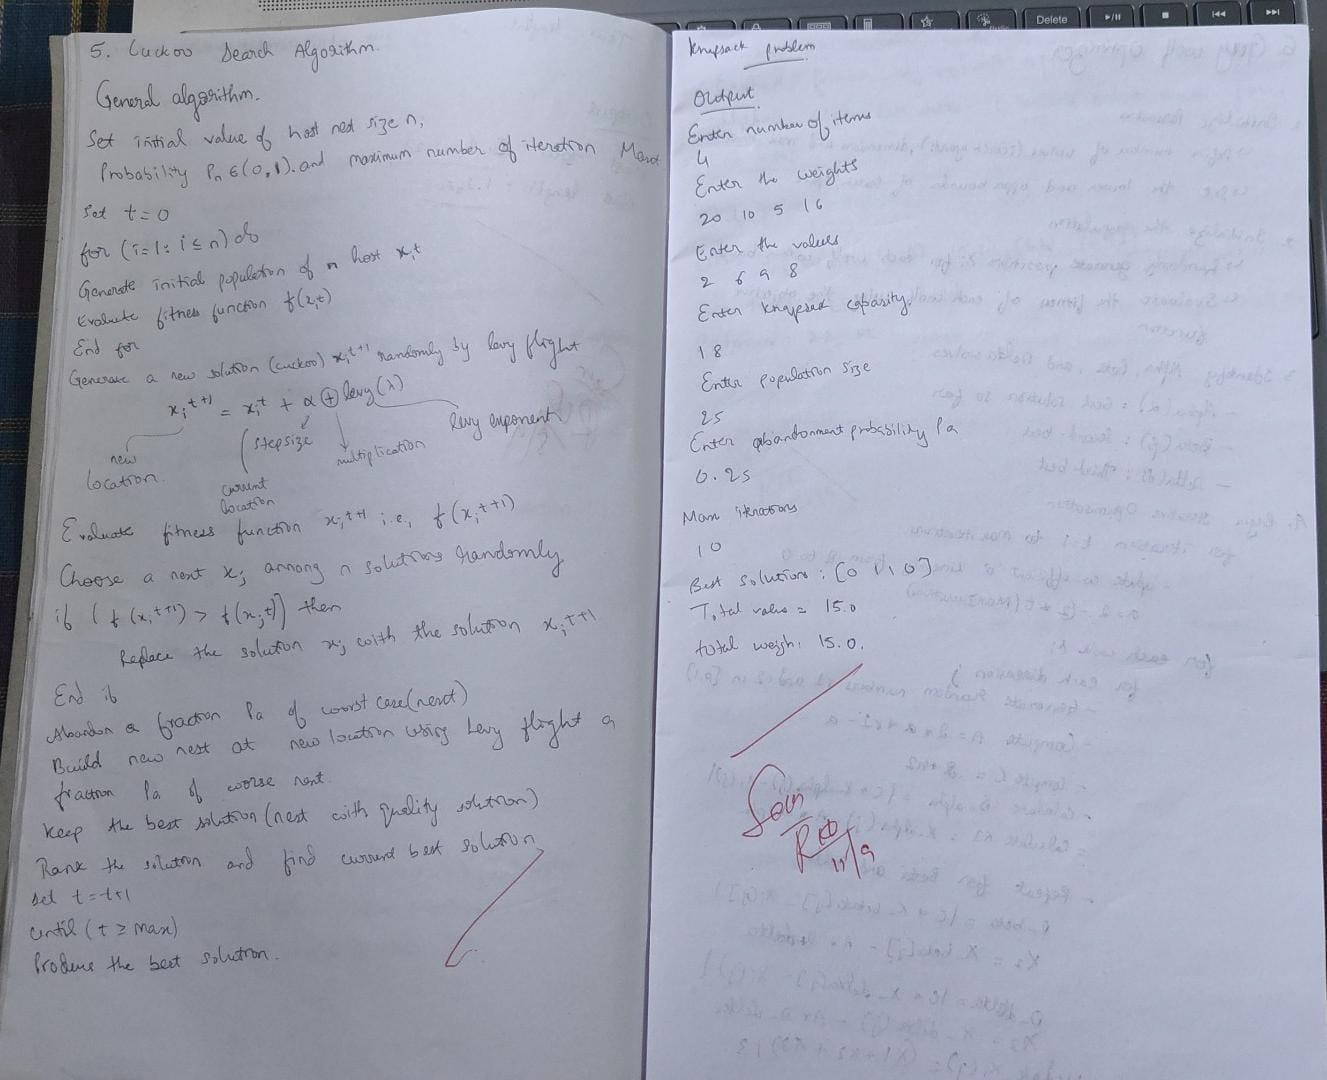 5. Cuckoo Search Algorithm.
General algorithm.
Set initial value of host nest size n,
Probability Pn ∈ (0,1). and maximum number of iteration Maxt
Set t=0
for (i=1: i ≤ n) do
Generate initial population of n host xit
Evaluate fitness function f(xit)
End for
Generate a new solution (cuckoo) xi t+1 randomly by levy flight
xi t+1 = xi t + α ⊕ levy(λ)
levy exponent
stepsize
multiplication
new
location.
current
location
Evaluate fitness function xi t+1 i.e, f(xi t+1)
Choose a nest xj among n solutions randomly
if (f(xi t+1) > f(xj t)) then
Replace the solution xj with the solution xi t+1
End if
Abandon a fraction Pa of worst case(nest)
Build new nest at new location using Levy flight a
fraction Pa of worse nest.
Keep the best solution (nest with quality solution)
Rank the solution and find current best solution
set t=t+1
until (t ≥ Max)
Produce the best solution.
Knapsack problem
Output
Enter number of items
4
Enter the weights
20 10 5 16
Enter the values
2 6 9 8
Enter knapsack capasity.
18
Enter population size
25
Enter abandonment probability Pa
0.25
Max iterations
10
Best solution: [0 1 1 0]
Total value = 15.0
total weigh: 15.0.
11/9
Delete